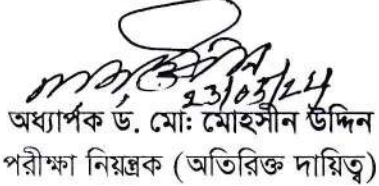 অধ্যাপক ড. মো: মোহসীন উদ্দিন
পরীক্ষা নিয়ন্ত্রক (অতিরিক্ত দায়িত্ব)